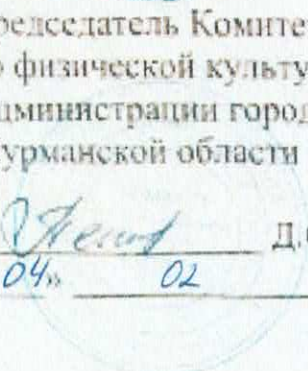 редседатель Комите
о физической культу
дминистрации город
урманской области
Д.
04» 02